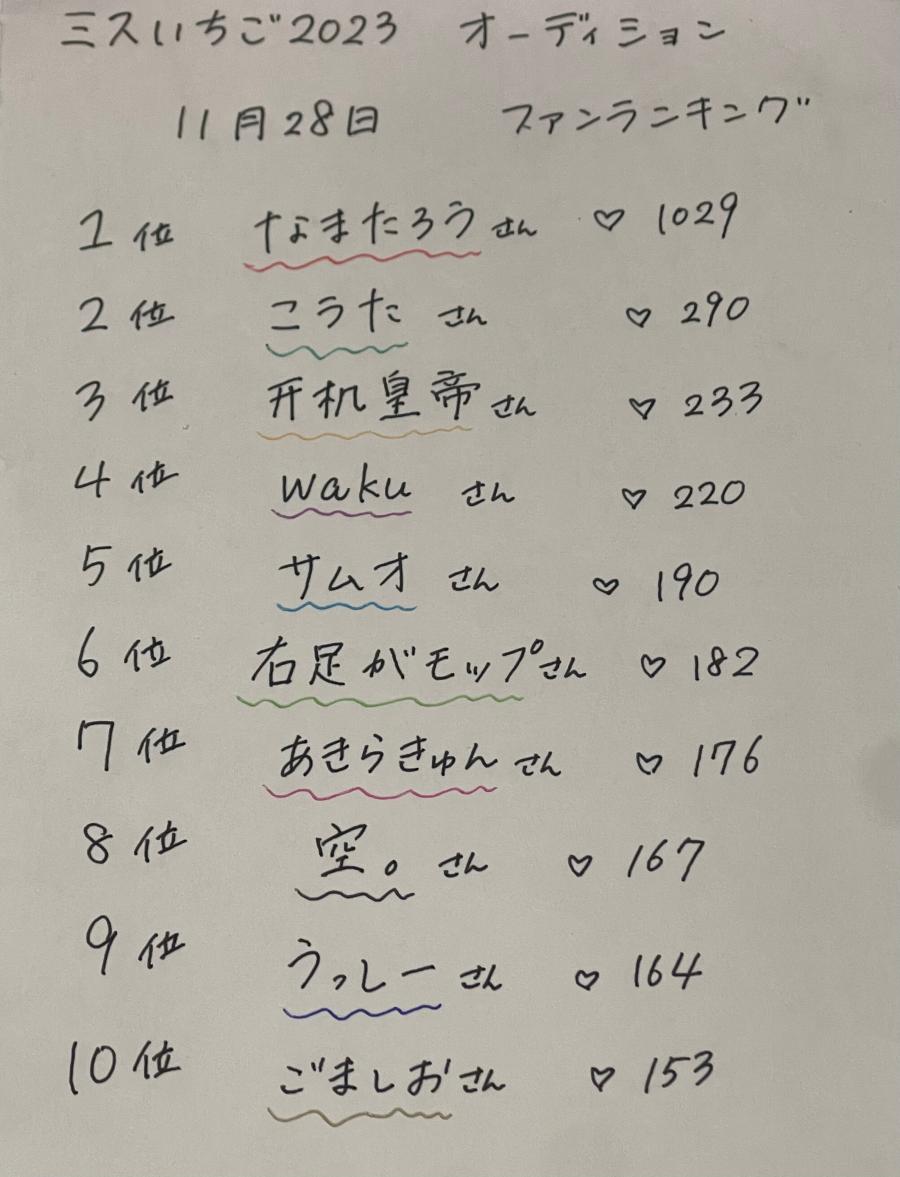 ミスいちご2023 オーディション
11月28日 ファンランキング
1位 なまたろうさん ♡ 1029
2位 こうた さん ♡ 290
3位 开机皇帝さん ♡ 233
4位 waku さん ♡ 220
5位 サムオ さん ♡ 190
6位 右足がモップさん ♡ 182
7位 あきらきゅん さん ♡ 176
8位 空。さん ♡ 167
9位 うっしー さん ♡ 164
10位 ごましおさん ♡ 153